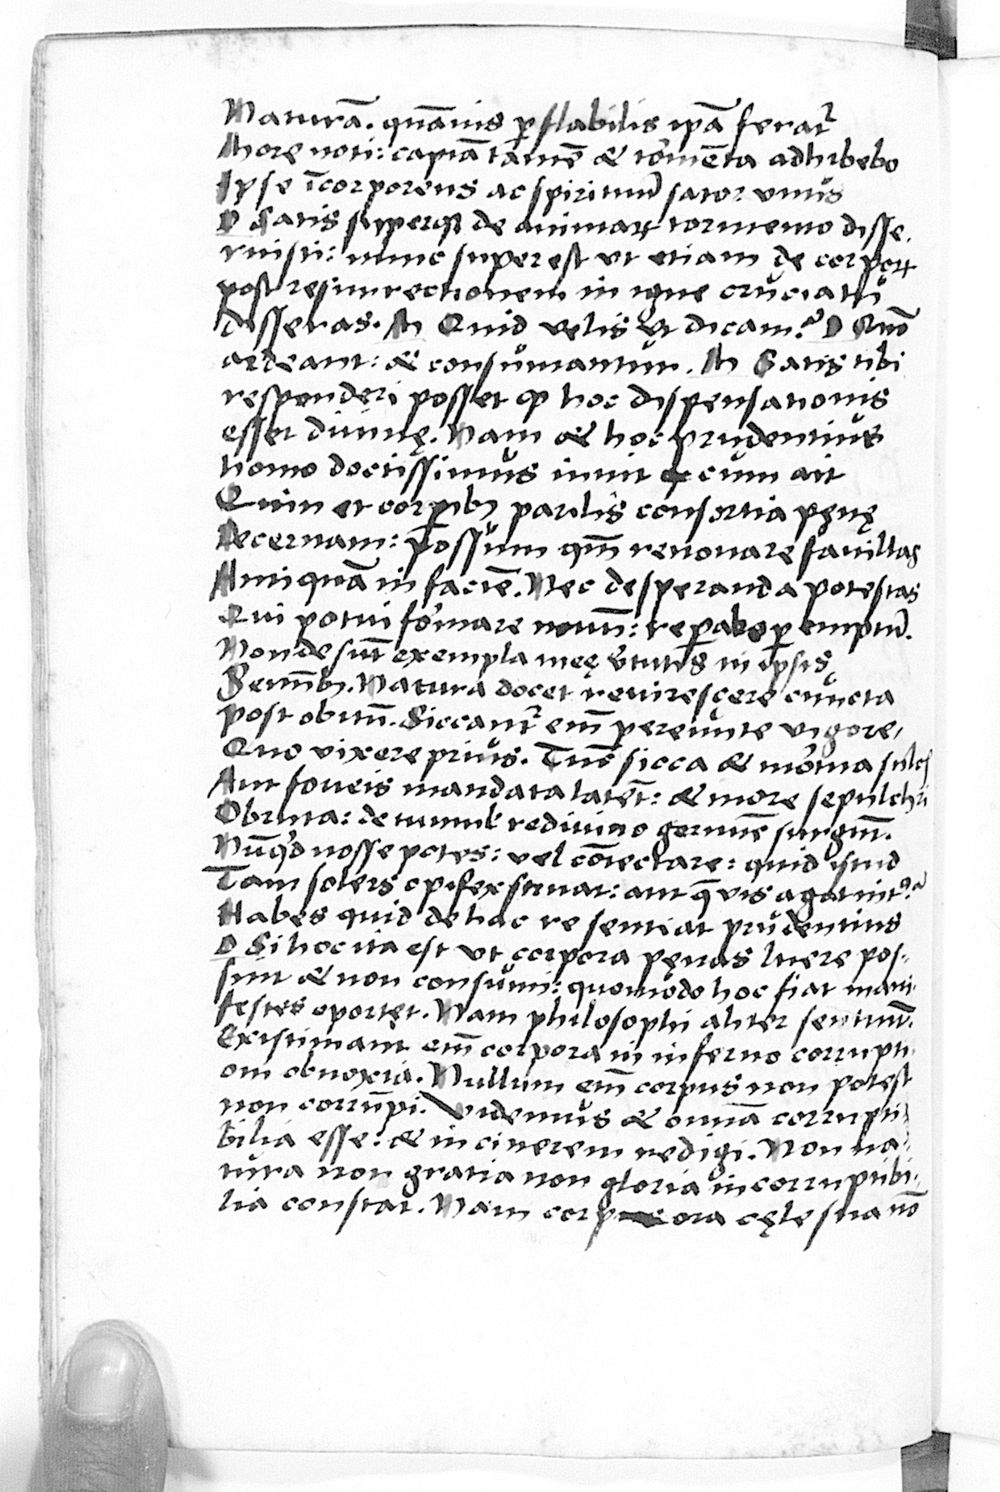 Naturã. quãuis ꝑflabilis ip̃a feraꝉ
More noti: captã tamẽ & tormẽta adhibebo
Ipse ĩcorporeus ac spirituũ sator vnus
D Satis superqꝫ de animaꝝ tormento disse-
ruisti: nunc superest vt etiam de corpoꝝ
post resurrectionem in igne cruciatu
disseras. M Quid velis vt dicam? D Quõ
ardeant: & consumantur. M Satis tibi
responderi posset ꝙ hoc dispensationis
esset diuinę. Nam & hoc prudentius
homo doctissimus innit cum ait
Quin et corꝑibꝫ parilis consortia pęnę
Decernam: possum qm̃ renouare fauillas
Antiquã in faciẽ. Nec desperanda potestas
Qui potui formare nouũ: reꝑabo ꝑemptũ.
Non desũt exempla meę v̓tutis in ipsis
Seminibꝫ. Natura docet reuirescere cuncta
post obitũ. Siccant̃ em̃ pereunte vigore,
Quo vixere prius. Tũc sicca & mortua sulcis
Aut foueis mandata latẽt: & more sepulchri
Obruta: de tumulo rediuiuo germĩe surgũt.
Nũqd nosse potes: vel cõiectare: quid istud
Tam solers opifex struat: aut q̃ vis agat intꝰ?
Habes quid de hac re sentiat prudentius
D Si hoc ita est vt corpora pęnas luere pos-
sint & non consumi: quomodo hoc fiat mani-
festes oportet. Nam philosophi aliter sentiunt.
Existimant em̃ corpora in inferno corrupti-
oni obnoxia. Nullum em̃ corpus non potest
non corrũpi. Videmus & omnia corrupti-
bilia esse: & in cinerem redigi. Non na-
tura non gratia non gloria incorruptibi-
lia constat. Nam corpora cęlestia nõ